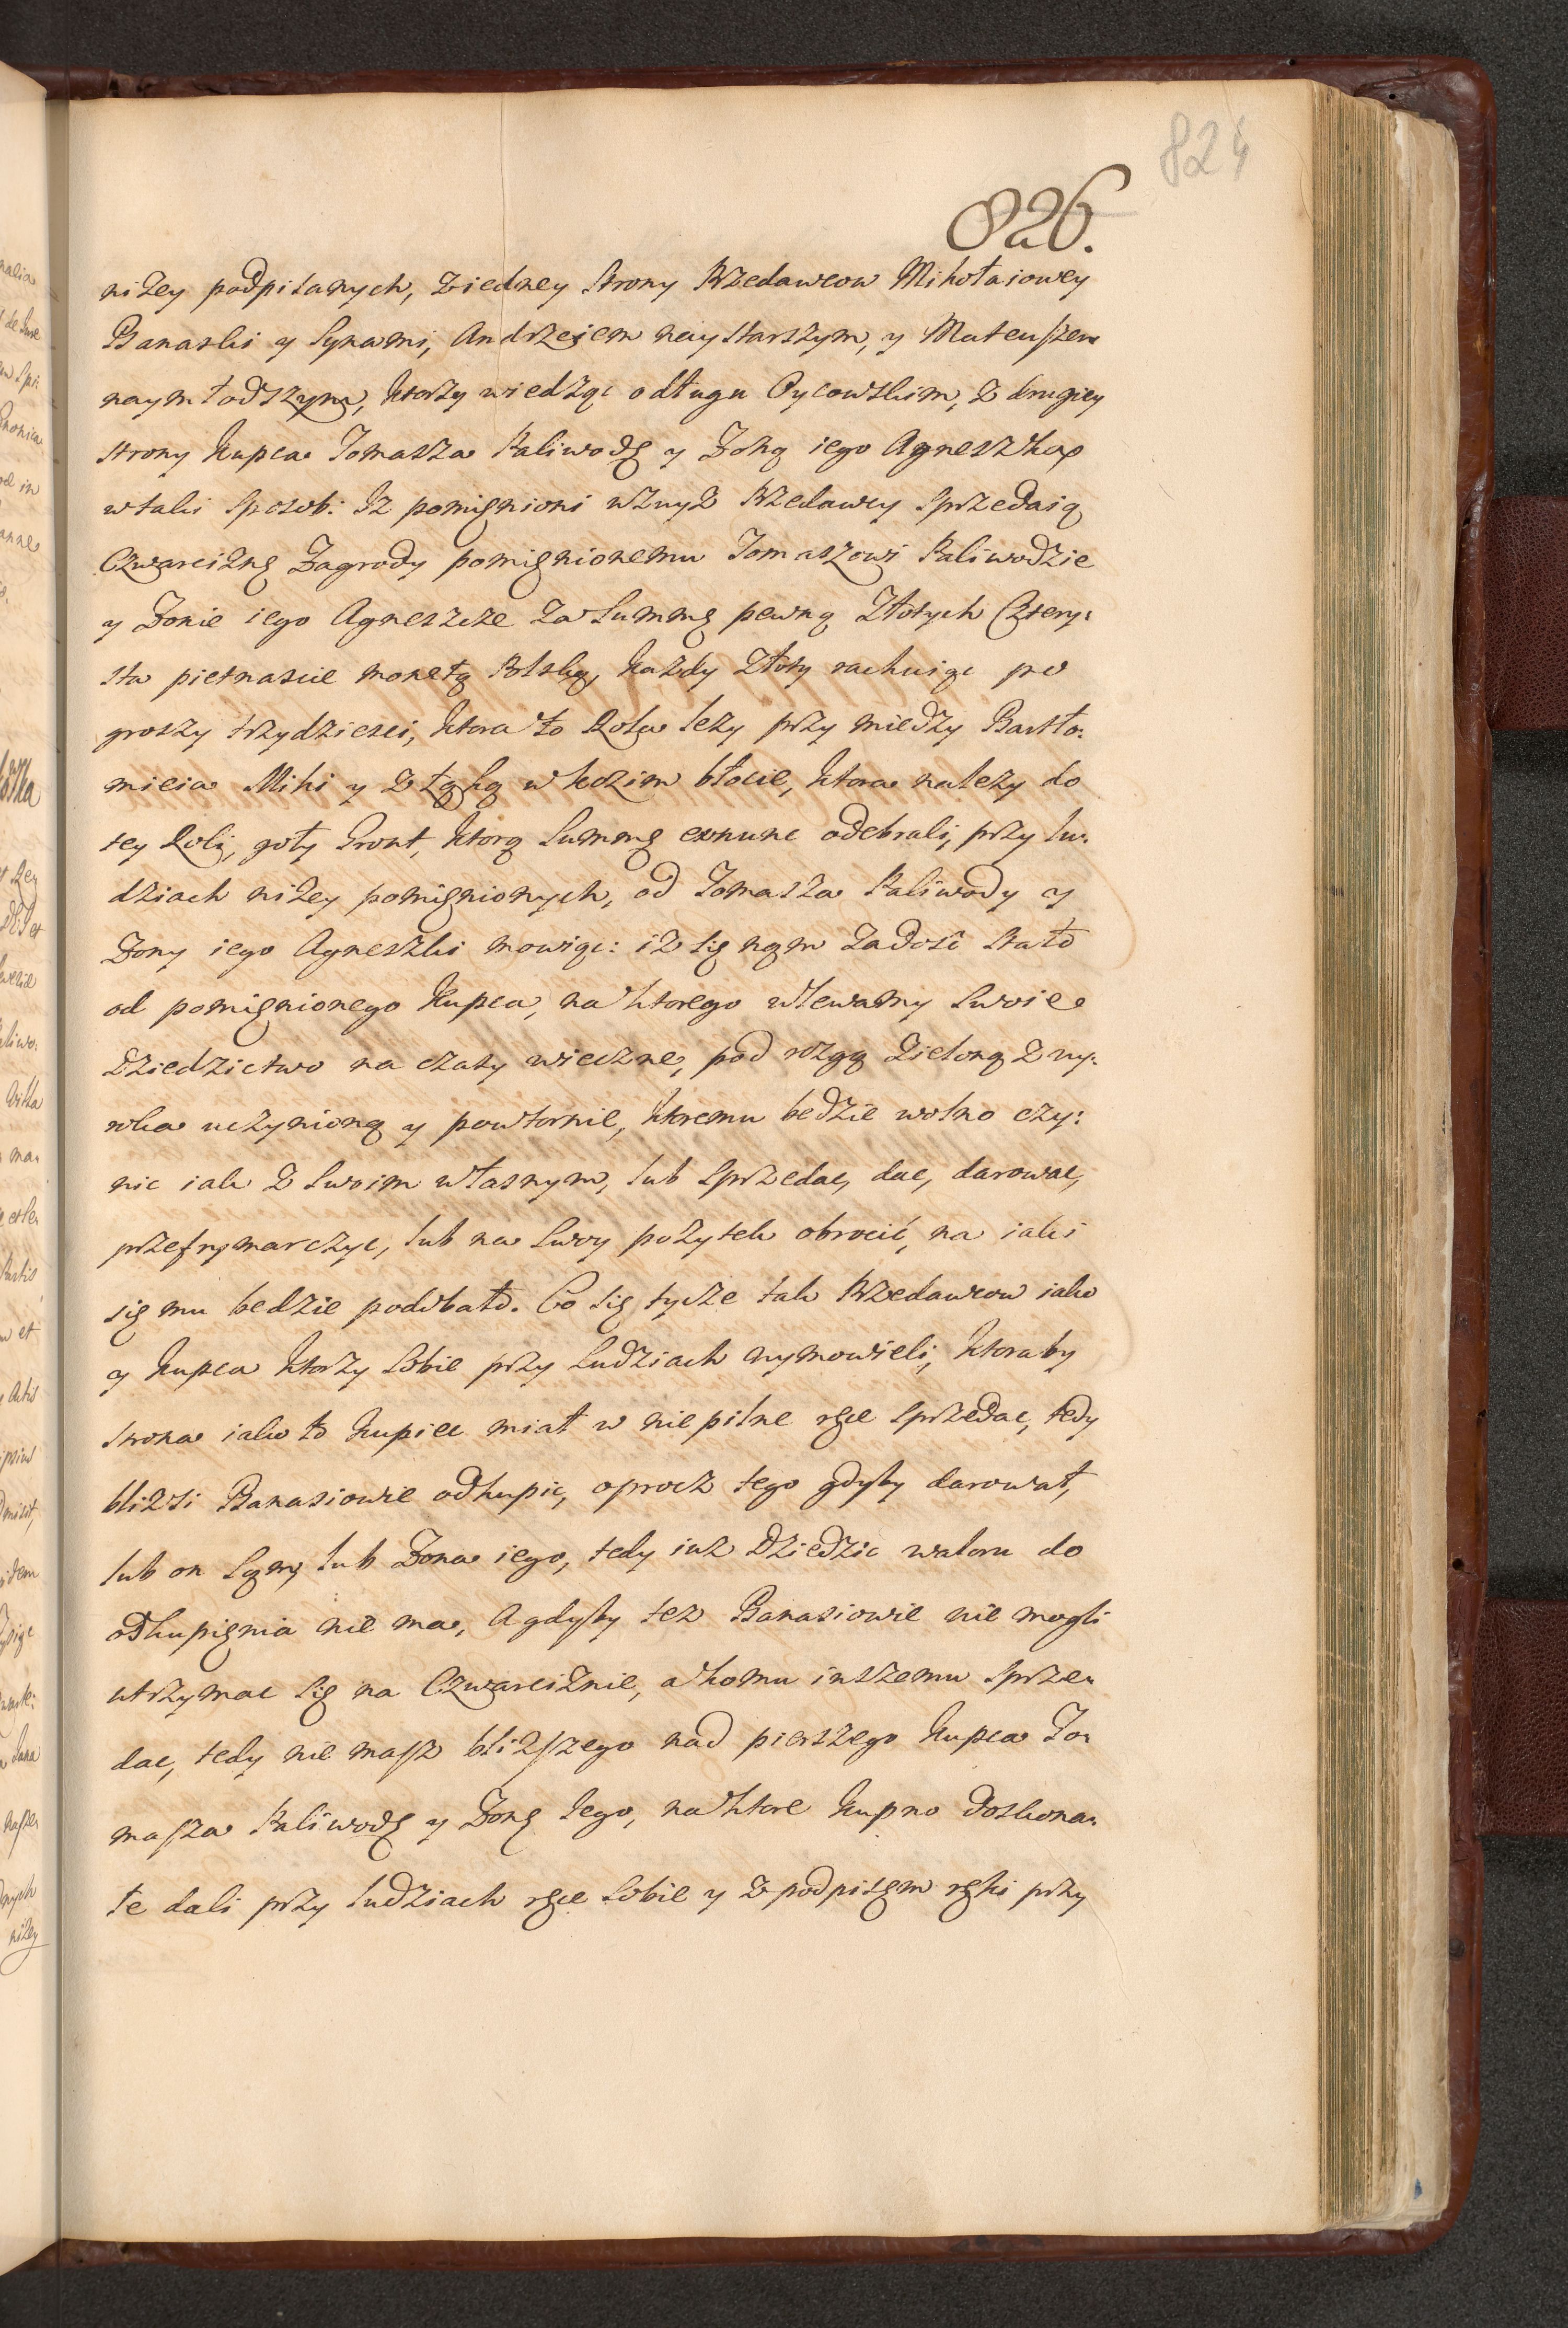 824
826.
niżey podpisanych, ziedney strony Przedawcow Mikołaiowey
Banaski y Synami, Andrzeiem naystarszym, y Mateuszem
naymłodszym, ktorzy wiedząc odługu Oycowskim, z drugiey
strony Kupca Tomasza Paliwodę y Żonę iego Agneszką
wtaki sposob: Iż pomięnioni wzwyż Przedawcy sprzedaią
Czwarciznę Zagrody pomięnionemu Tomaszowi Paliwodzie
y Żonie iego Agneszcze za Summę pewną Złotych Cztery:
sta pietnascie monetą Polską, każdy Złoty rachuiąc po
groszy trzydziesci, ktora to Rola leży przy miedzy Bartło:
mieia Miki y z łąką w kozim błocie, ktora należy do
tey Roli, goły Gront, ktorą Summę exnunc odebrali, przy lu:
dziach niżey pomięnionych, od Tomasza Paliwody y
Żony iego Agneszki mowiąc: iż się nąm zadosić stało
od pomięnionego Kupca, na ktorego wlewamy swoie
Dziedzictwo na czasy wieczne, pod rozgą zieloną z wy:
rka uczynioną y powtornie, ktoremu bedzie wolno czy:
nic iak z swoim własnym, lub sprzedac, dac, darowac,
przefrymarczyc, lub na swoy pożytek obrocić, na iaki
się mu bedzie podobało. Co się tycze tak Przedawcow iako
y Kupca ktorzy sobie przy ludziach wymowieli, ktoraby
strona iako to Kupiec miał w niepilne ręce sprzedac, tedy
bliżsi Banasiowie odkupic, oprocz tego gdyby darował,
lub on sąm, lub Żona iego, tedy iuż Dziedzic waloru do
odkupięnia nie ma, A gdyby też Banasiowie nie mogli
utrzymac się na Czwarciznie, a komu inszemu sprze:
dac, tedy nie masz bliższego nad pierszego Kupca To:
masza Paliwodę y Żonę Jego, na ktore kupno doskona:
łe dali przy ludziach ręce sobie y z podpisęm ręki przy